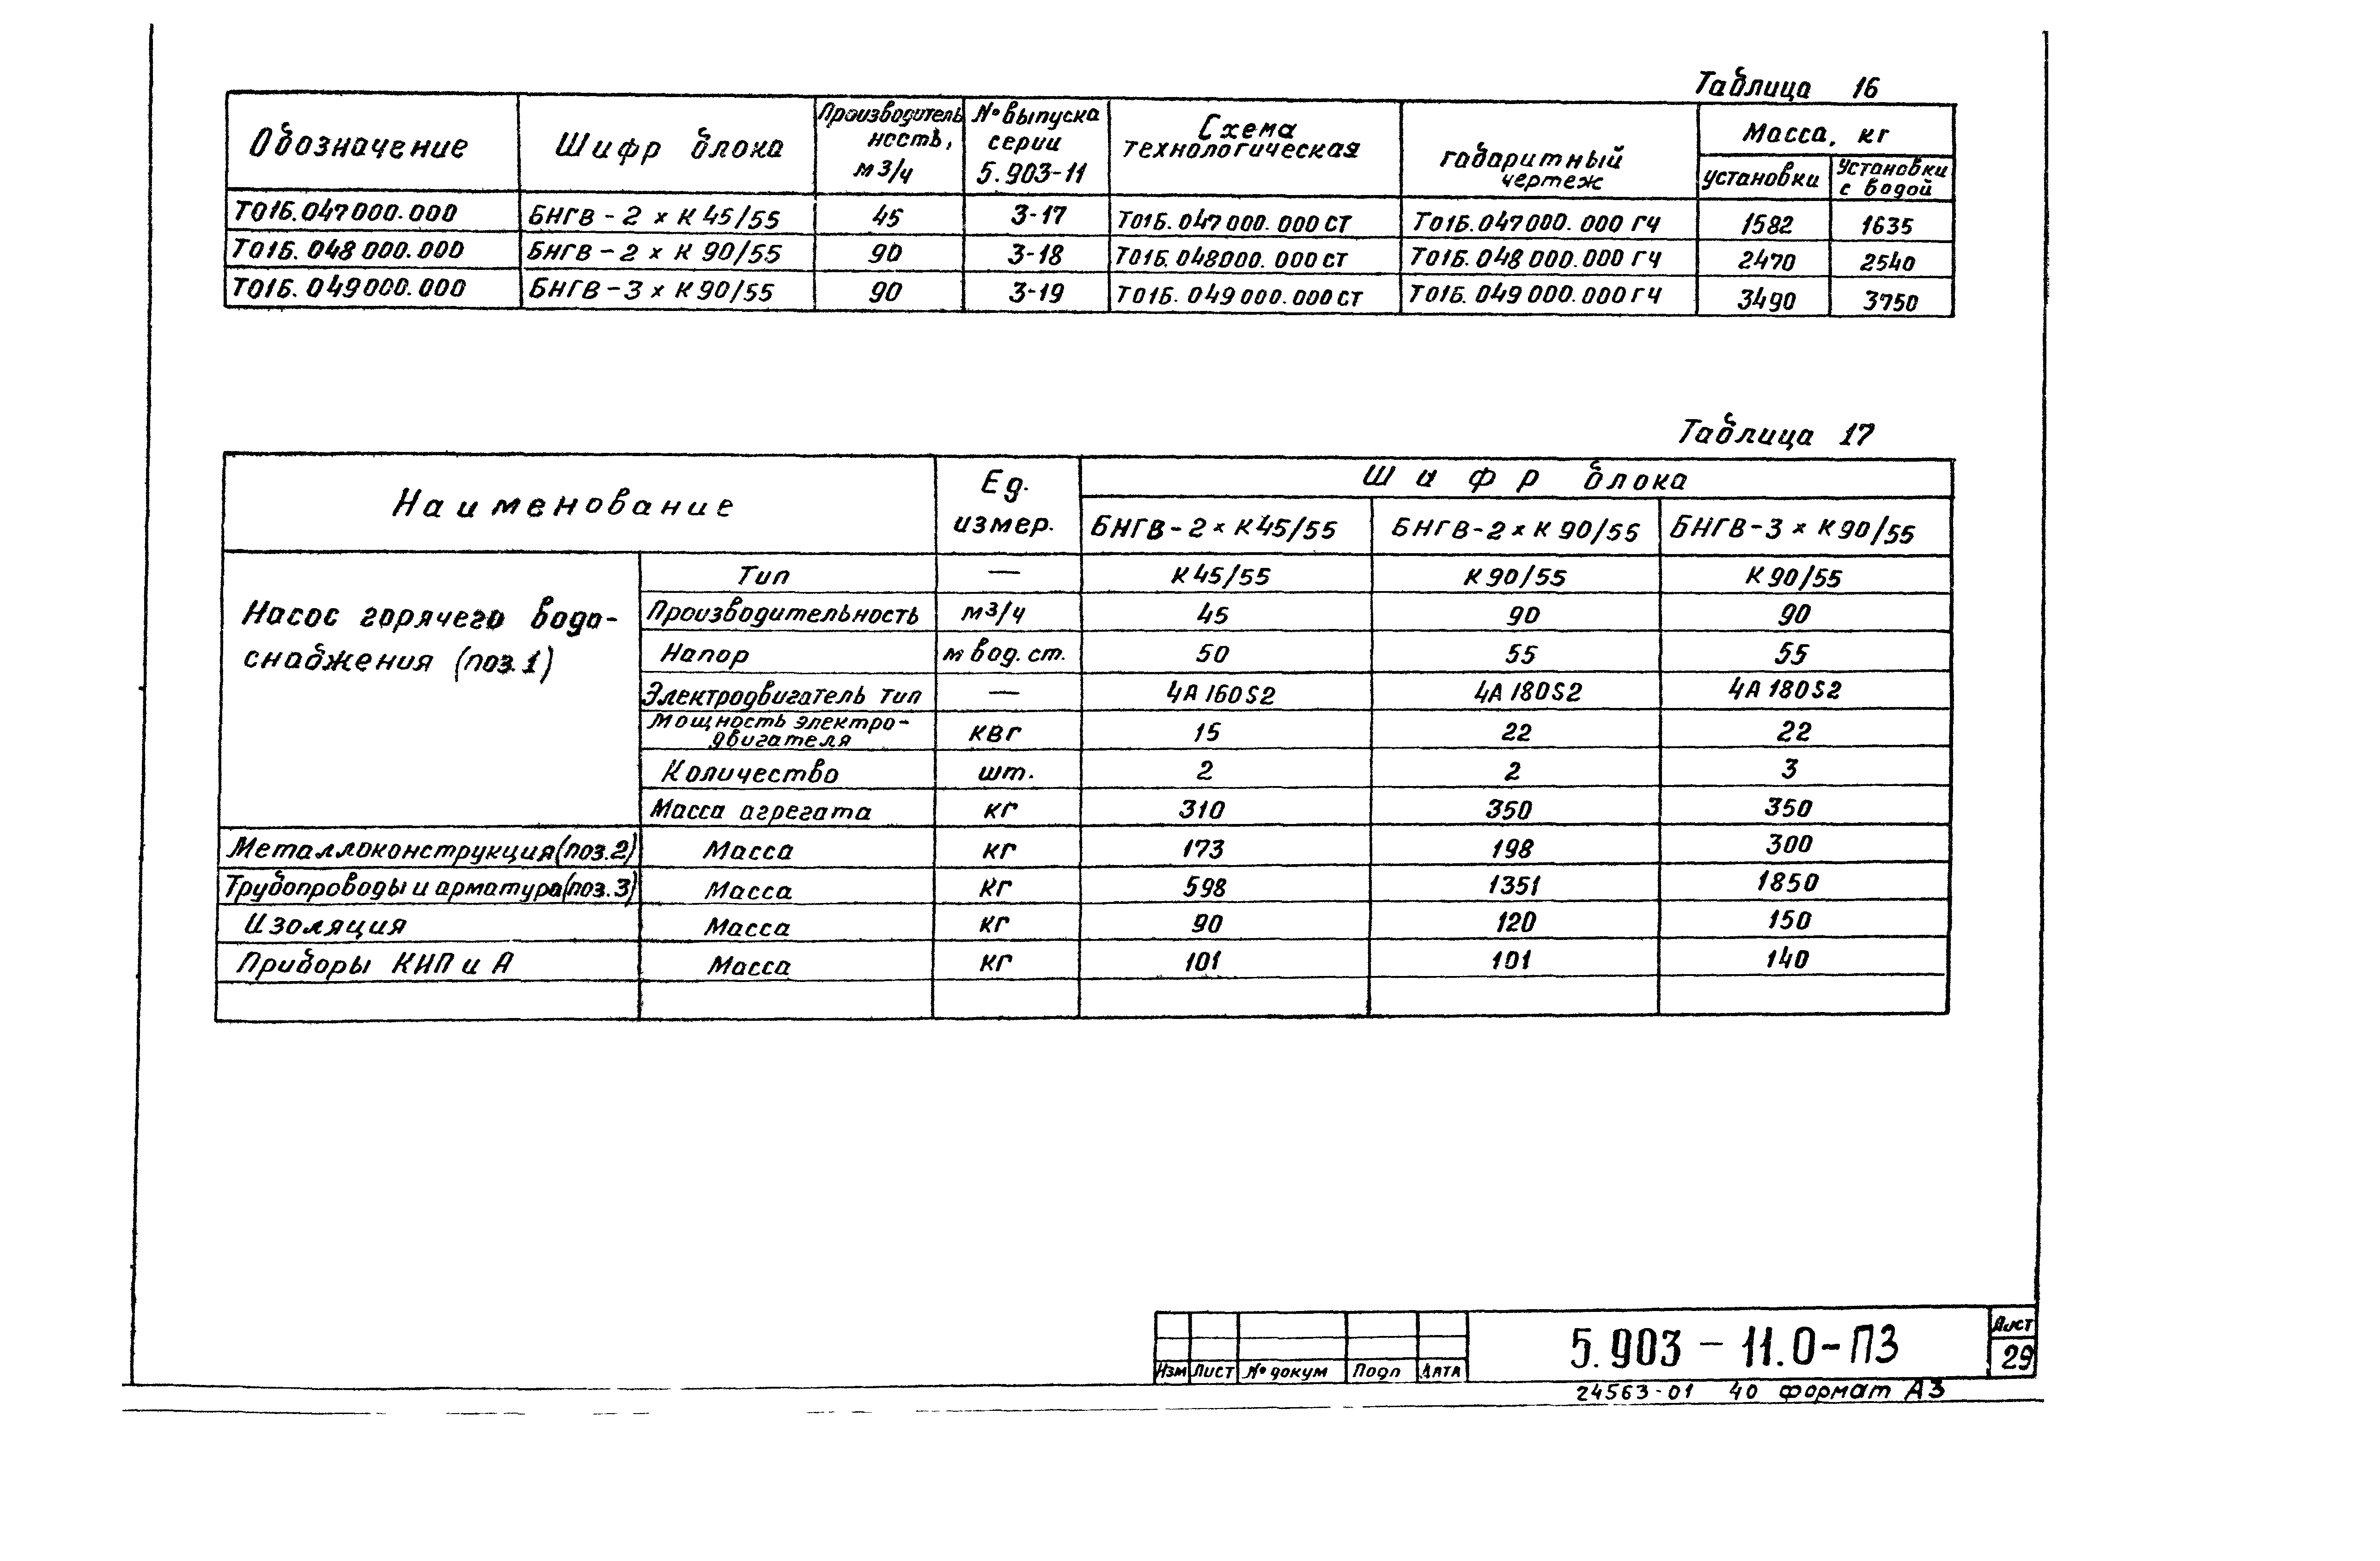 Таблица 16
Обозначение Шифр блока Производитель ность, м3/ч №выпуска серии 5.903-11 Схема технологическая габаритный чертеж Масса, кг
установки Установки с водой
Т01Б.047000.000 БНГВ-2 х К 45/55 45 3-17 Т01Б.047000.000 СТ Т01Б.047000.000 ГЧ 1582 1635
Т01Б.048000.000 БНГВ-2 х К 90/55 90 3-18 Т01Б.048000.000 СТ Т01Б.048000.000 ГЧ 2470 2540
Т01Б.049000.000 БНГВ-3 х К 90/55 90 3-19 Т01Б.049000.000 СТ Т01Б.049000.000 ГЧ 3490 3750
Таблица 17
Наименование Ед. измер. Шифр блока
БНГВ-2 х К45/55 БНГВ-2 х К 90/55 БНГВ-3 х К90/55
Насос горячего водо-
снабжения (поз.1)
Тип — К45/55 К90/55 К90/55
Производительность м3/ч 45 90 90
Напор м вод. ст. 50 55 55
Электродвигатель тип — 4А160S2 4А180S2 4А180S2
Мощность электро-
двигателя квг 15 22 22
Количество шт. 2 2 3
Масса агрегата кг 310 350 350
Металлоконструкция(поз.2) Масса кг 173 198 300
Трубопроводы и арматура(поз.3) Масса кг 598 1351 1850
Изоляция Масса кг 90 120 150
Приборы КИП и А Масса кг 101 101 140
Изм Лист № докум Подп Дата
5.903-11.0-ПЗ
Лист
29
24563-01 40 формат А3